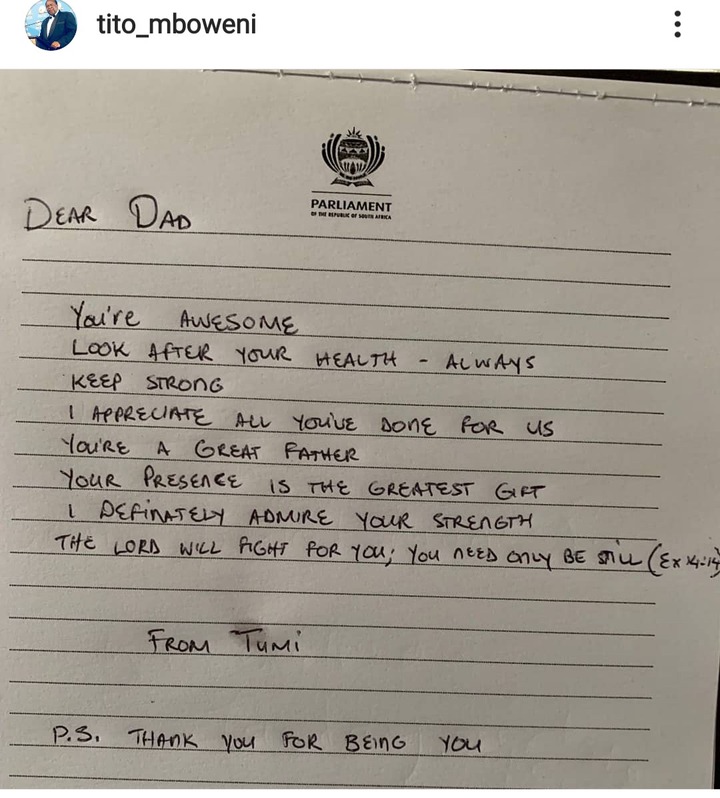 tito_mboweni
PARLIAMENT
OF THE REPUBLIC OF SOUTH AFRICA
DEAR DAD
You're AWESOME
LOOK AFTER YOUR HEALTH - ALWAYS
KEEP STRONG
I APPRECIATE ALL YOU'VE DONE FOR US
YOU'RE A GREAT FATHER
YOUR PRESENCE IS THE GREATEST GIFT
I DEFINATELY ADMIRE YOUR STRENGTH
THE LORD WILL FIGHT FOR YOU; YOU NEED ONLY BE STILL (Ex 14:14)
FROM TUMI
P.S. THANK YOU FOR BEING YOU